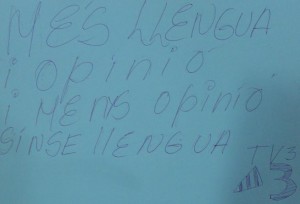 MÉS LLENGUA
i opinió
i MENS opinio
SINSE llENGUA
TV3
3